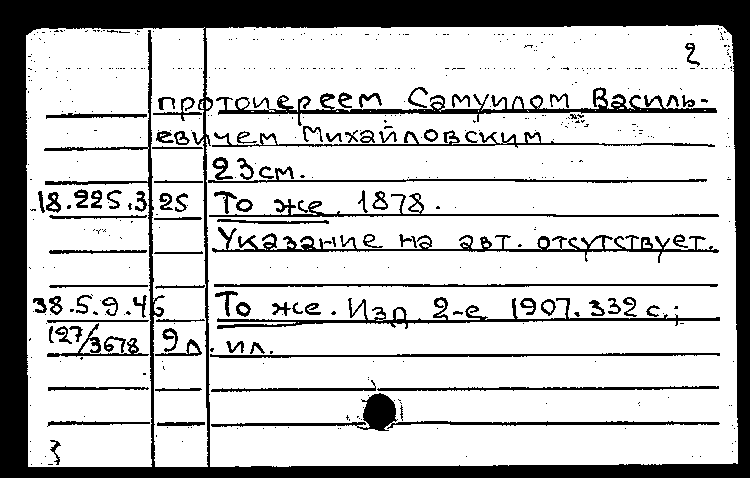 2
протоиереем Самуилом Василь-
евичем Михайловским.
23см.
18.225.3.25 То же. 1878.
Указание на авт. отсутствует.
38.5.9.46 То же. Изд. 2-е 1907. 332 с.;
127/3678 9 л. ил.
3